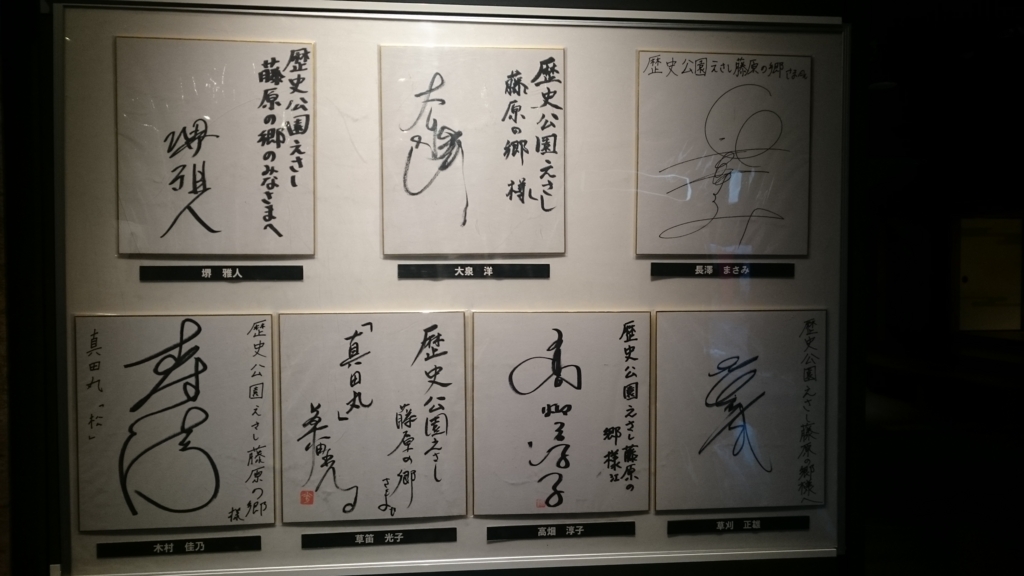 歴史公園えさし
藤原の郷のみなさまへ
堺雅人
堺 雅人
歴史公園えさし
藤原の郷 様
大泉 洋
歴史公園えさし藤原の郷さま
長澤 まさみ
歴史公園えさし藤原の郷
様
真田丸「松」
木村 佳乃
歴史公園えさし
藤原の郷
さま
「真田丸」
草笛 光子
歴史公園えさし藤原の
郷様江
高畑淳子
高畑 淳子
歴史公園えさし藤原の郷様へ
草刈 正雄